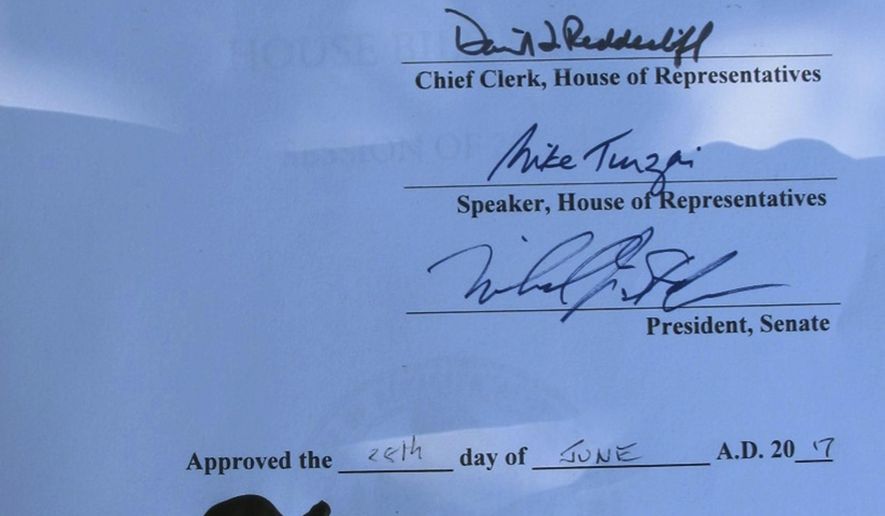 HOUSE BILL
David L Reddecliff
Chief Clerk, House of Representatives
SESSION OF
Mike Turzai
Speaker, House of Representatives
President, Senate
Approved the 28th day of JUNE A.D. 2017